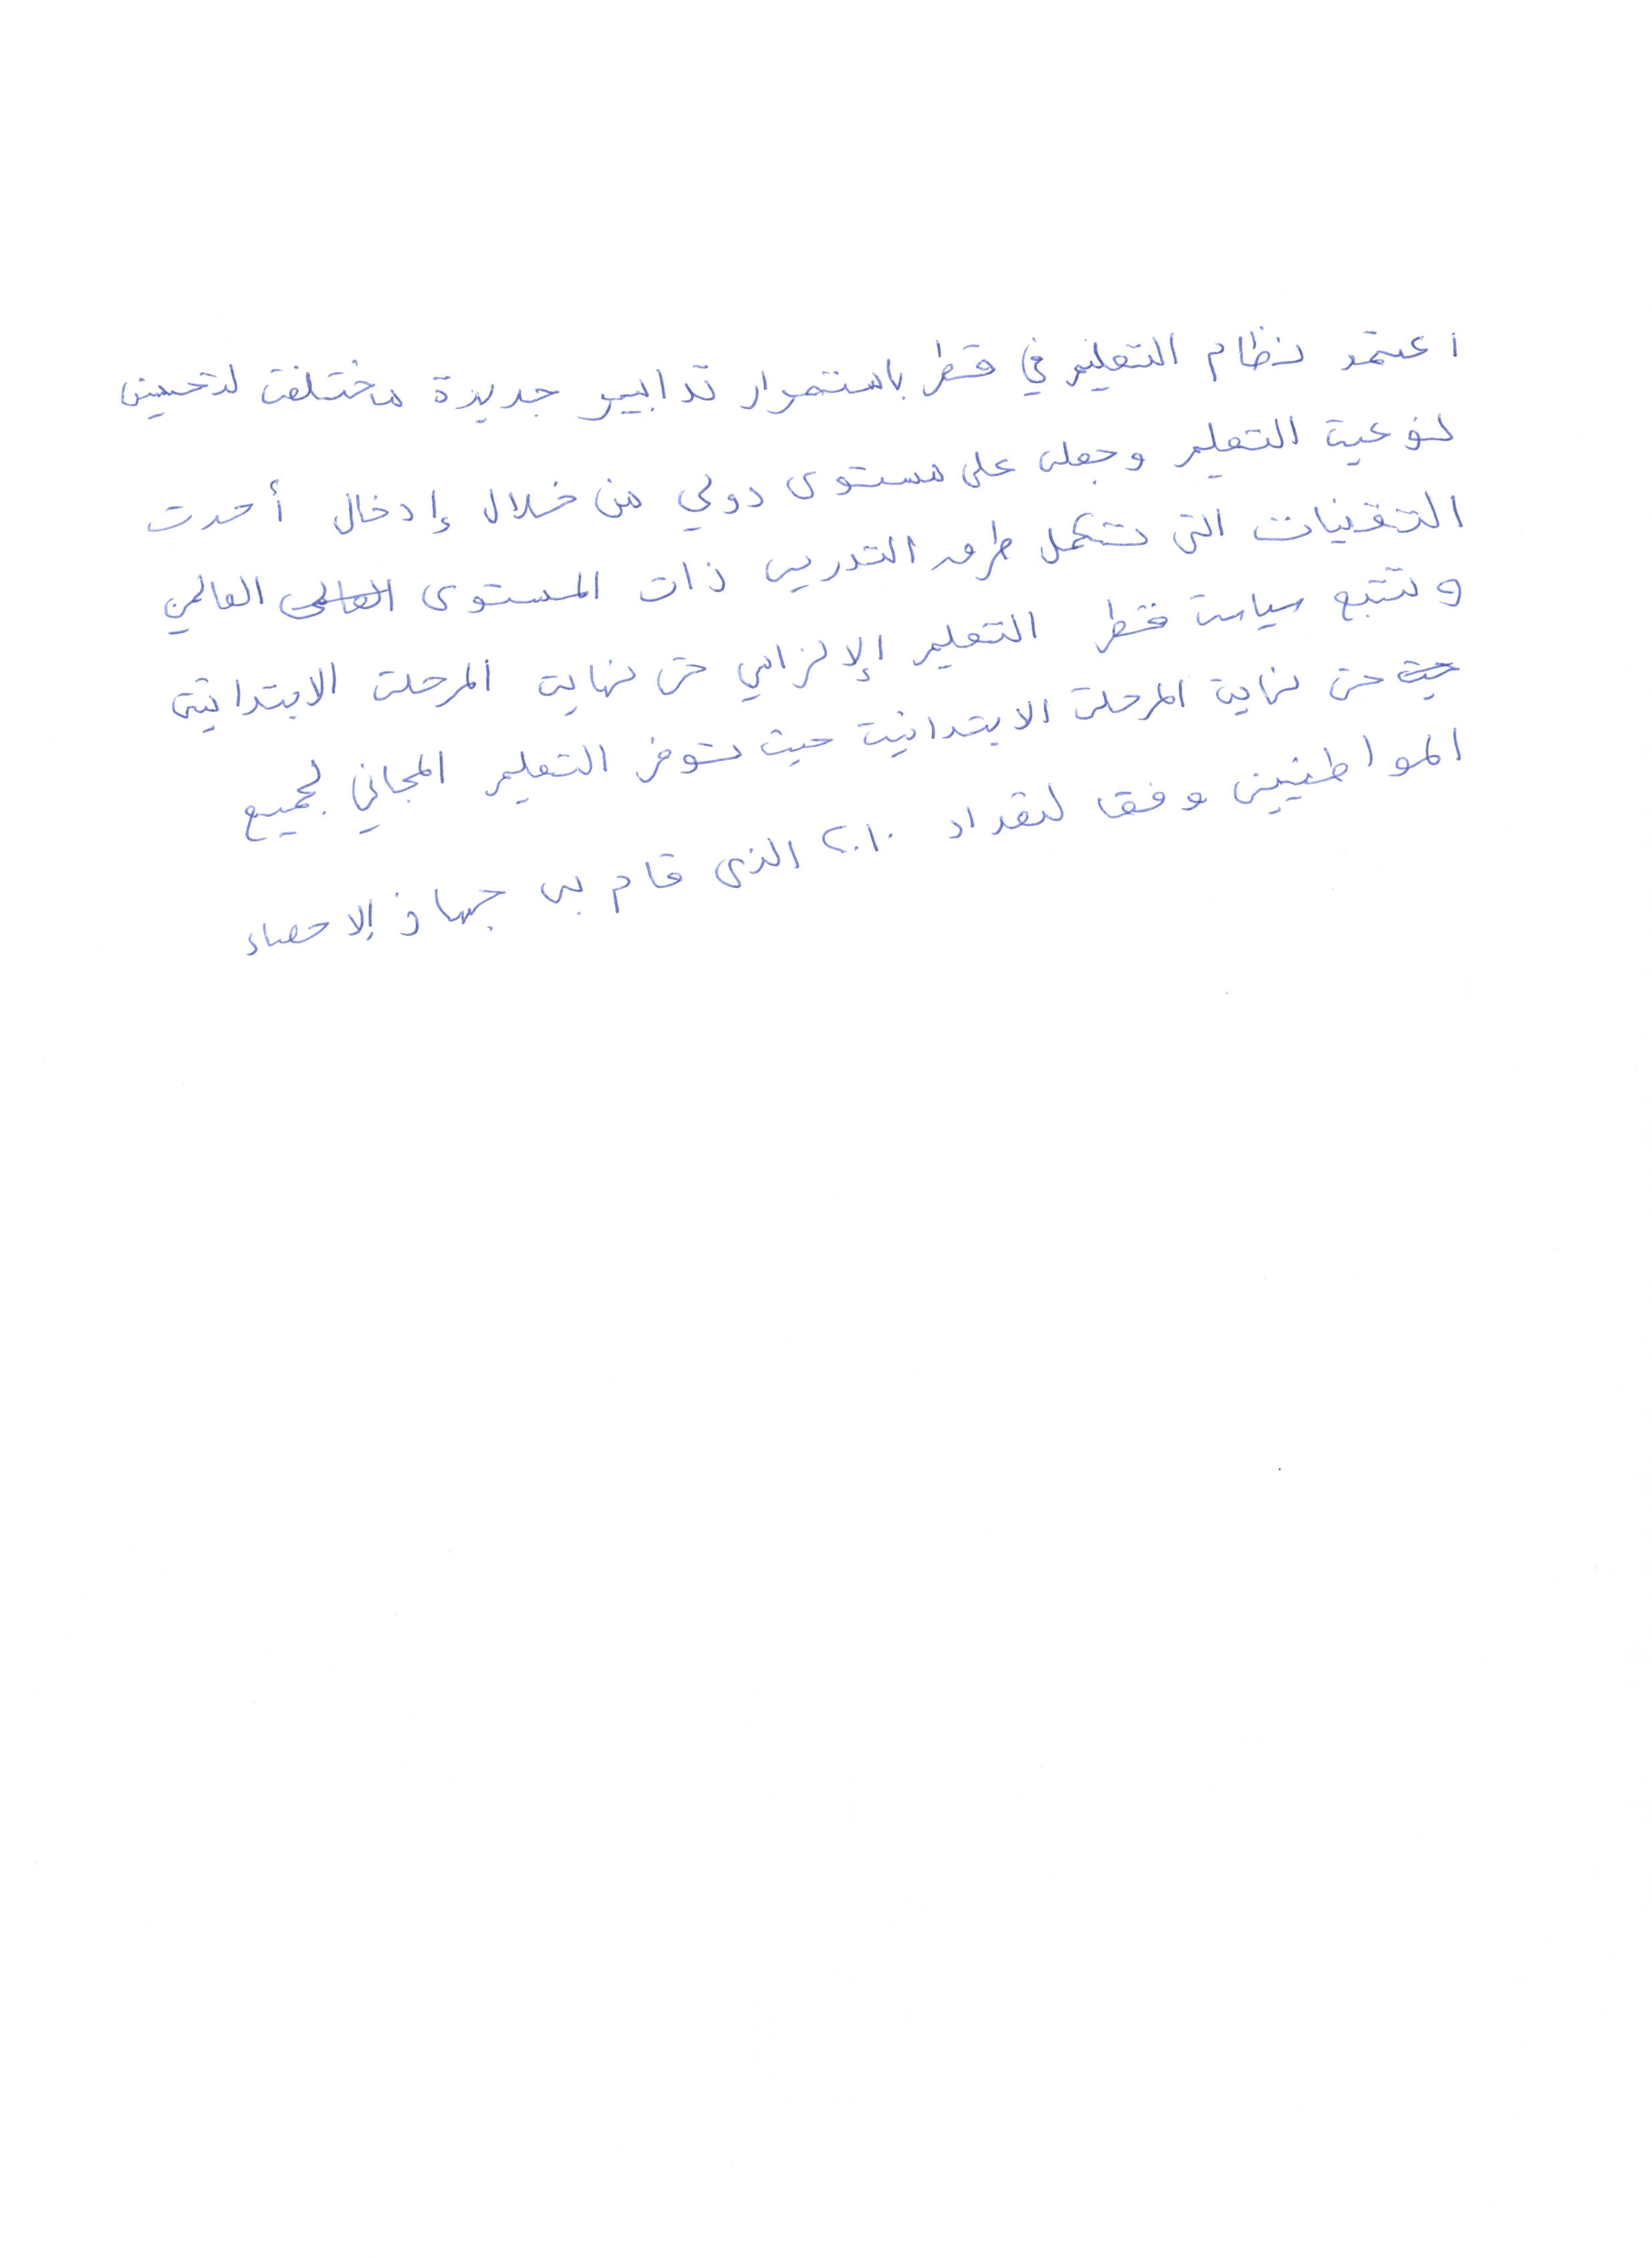 اعتمد نظام التعليم في قطر باستمرار تدابير جديدة مختلفة لتحسين
نوعية التعليم وجعله على مستوى دولي من خلال إدخال أحدث
التقنيات التى تشكل طرق التدريس ذات المستوى العالمى العالمي
وتتبع سياسة قطر التعليم الإلزامي حتى نهاية المرحلة الابتدائية
حتى نهاية المرحلة الابتدائية حيث ستوفر التعليم المجاني لجميع
المواطنيين وفقا لتعداد ٢٠١٠ الذى قام به جهاز الاحصاء